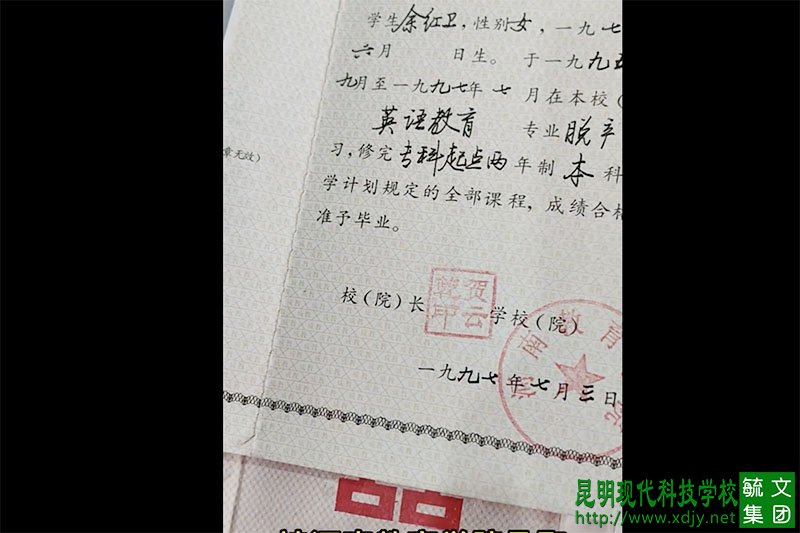 学生余红卫，性别女，一九七
六月 日生。于一九九五
九月至一九九七年七月在本校（
英语教育 专业脱产
习，修完专科起点两年制本科
学计划规定的全部课程，成绩合格
准予毕业。
章无效）
校（院）长
贺云
印
学校（院）
河南教育
院
一九九七年七月三日
昆明现代科技学校
http://www.xdjy.net
毓文
集团